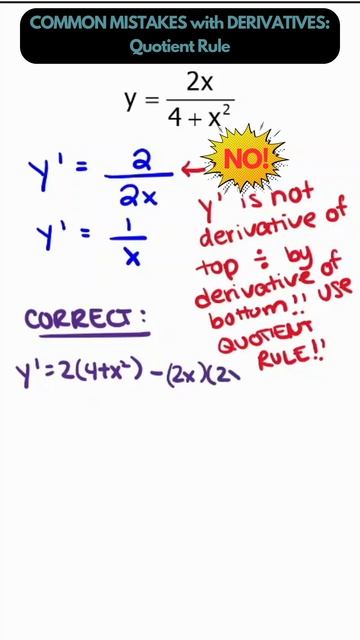 COMMON MISTAKES with DERIVATIVES:
Quotient Rule
y = 2x / (4 + x²)
y' = 2 / 2x
NO!
y' = 1 / x
y' is not
derivative of
top ÷ by
derivative of
bottom!! USE
QUOTIENT
RULE!!
CORRECT:
y' = 2(4+x²) - (2x)(2